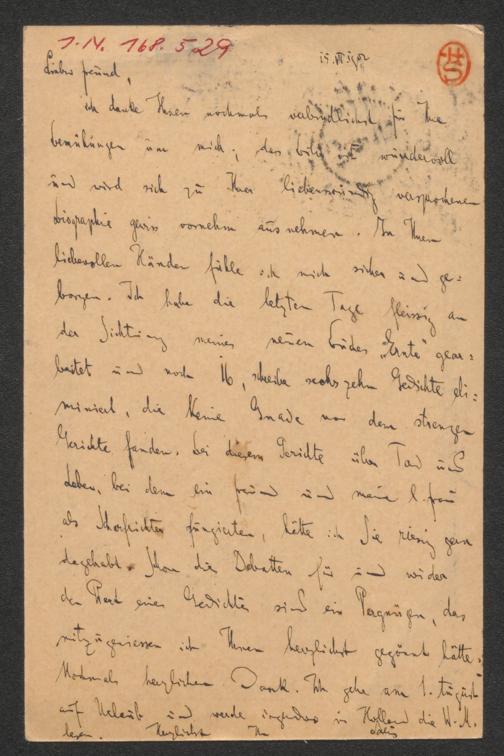 I.N. 168.529
15. VII 1902
Lieber freund,
ich danke Ihnen nochmals verbindlichst für Ihre
bemühungen um mich; das bild ist wundervoll
und wird sich zu Ihrer liebenswürdig versprochenen
biographie gewiss vornehm ausnehmen. In Ihren
liebevollen Händen fühle ich mich sicher und ge=
borgen. Ich habe die letzten Tage fleissig an
der Sichtung meines neuen buches "Ernte" gear=
beitet und noch 16, schreibe sechszehn Gedichte eli=
miniert, die keine Gnade vor dem strengen
Gerichte fanden. bei diesem Gerichte über Tod und
Leben, bei dem ein freund und meine l. frau
als Schöffen fungierten, hätte ich Sie riesig gern
dagehabt. Schon die Debatten für und wider
den Wert eines Gedichtes sind ein Vergnügen, das
mitzugeniessen ich Ihnen herzlichst gegönnt hätte.
Nochmals herzlichen Dank. Ich gehe am 1. August
auf Urlaub und werde irgendwo in Holland die
lesen. Herzlichst Ihr